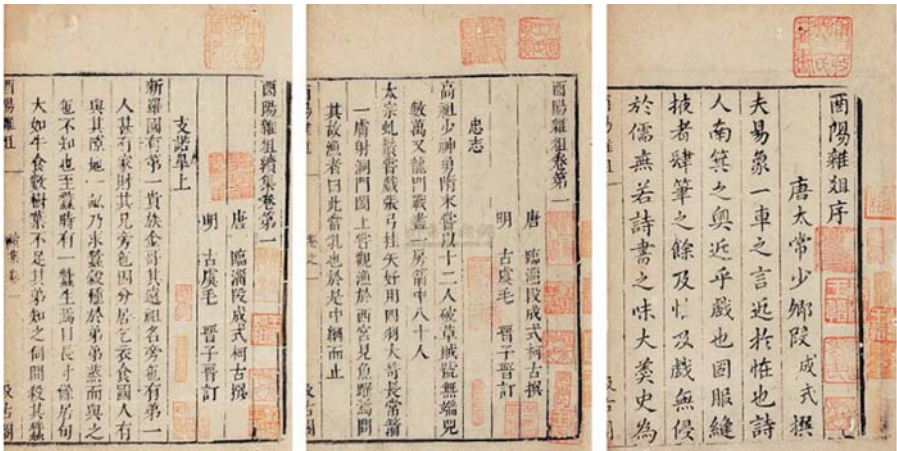 酉陽雜俎序
唐太常少卿段成式撰
夫易象一車之言近於恠也詩
人南箕之奧近乎戲也固服縫
掖者肆筆之餘及恠及戲無侵
於儒無若詩書之味大羹史為
酉陽雜俎卷第一
唐 臨淄段成式柯古撰
明 古虞毛 晉子晉訂
忠志
高祖少神勇隋末嘗以十二人破草賊號無端兒
數萬又龍門戰盡一房箭中八十人
太宗虬鬚嘗戲張弓挂矢好用四羽大笴長常箭
一膚射洞門闔上嘗觀漁於西宮見魚躍焉問
其故漁者曰此當乳也於是中網而止
酉陽雜俎續集卷第一
唐 臨淄段成式柯古撰
明 古虞毛 晉子晉訂
支諾臯上
新羅國有第一貴族金哥其遠祖名旁㐌有弟一
人甚有家財其兄旁㐌因分居乞衣食國人有
與其隙地一畝乃求蠶穀種於弟弟蒸而與之
㐌不知也至蠶時有一蠶生焉日長寸餘居旬
大如牛食數樹葉不足其弟知之伺間殺其蠶